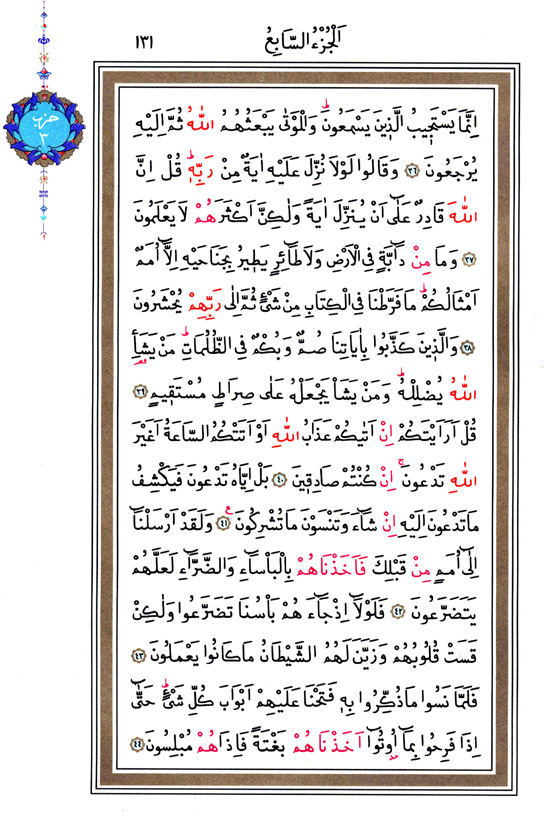 اَلْجُزْءُ السَّابِعُ
١٣١
حزب
٣
اِنَّمَا يَسْتَجٖيبُ الَّذٖينَ يَسْمَعُونَؕ وَالْمَوْتٰى يَبْعَثُهُمُ اللّٰهُ ثُمَّ اِلَيْهِ
يُرْجَعُونَ ﴿٣٦﴾ وَقَالُوا لَوْلَا نُزِّلَ عَلَيْهِ اٰيَةٌ مِنْ رَبِّهٖؕ قُلْ اِنَّ
اللّٰهَ قَادِرٌ عَلٰٓى اَنْ يُنَزِّلَ اٰيَةً وَلٰكِنَّ اَكْثَرَهُمْ لَا يَعْلَمُونَ
﴿٣٧﴾ وَمَا مِنْ دَٓابَّةٍ فِي الْاَرْضِ وَلَا طَٓائِرٍ يَطٖيرُ بِجَنَاحَيْهِ اِلَّٓا اُمَمٌ
اَمْثَالُكُمْؕ مَا فَرَّطْنَا فِي الْكِتَابِ مِنْ شَيْءٍ ثُمَّ اِلٰى رَبِّهِمْ يُحْشَرُونَ
﴿٣٨﴾ وَالَّذٖينَ كَذَّبُوا بِاٰيَاتِنَا صُمٌّ وَبُكْمٌ فِي الظُّلُمَاتِؕ مَنْ يَشَأِ
اللّٰهُ يُضْلِلْهُؕ وَمَنْ يَشَأْ يَجْعَلْهُ عَلٰى صِرَاطٍ مُسْتَقٖيمٍ ﴿٣٩﴾
قُلْ اَرَاَيْتَكُمْ اِنْ اَتٰيكُمْ عَذَابُ اللّٰهِ اَوْ اَتَتْكُمُ السَّاعَةُ اَغَيْرَ
اللّٰهِ تَدْعُونَۚ اِنْ كُنْتُمْ صَادِقٖينَ ﴿٤٠﴾ بَلْ اِيَّاهُ تَدْعُونَ فَيَكْشِفُ
مَا تَدْعُونَ اِلَيْهِ اِنْ شَٓاءَ وَتَنْسَوْنَ مَا تُشْرِكُونَ ﴿٤١﴾ وَلَقَدْ اَرْسَلْنَٓا
اِلٰٓى اُمَمٍ مِنْ قَبْلِكَ فَاَخَذْنَاهُمْ بِالْبَأْسَٓاءِ وَالضَّرَّٓاءِ لَعَلَّهُمْ
يَتَضَرَّعُونَ ﴿٤٢﴾ فَلَوْلَٓا اِذْ جَٓاءَهُمْ بَأْسُنَا تَضَرَّعُوا وَلٰكِنْ
قَسَتْ قُلُوبُهُمْ وَزَيَّنَ لَهُمُ الشَّيْطَانُ مَا كَانُوا يَعْمَلُونَ ﴿٤٣﴾
فَلَمَّا نَسُوا مَا ذُكِّرُوا بِهٖ فَتَحْنَا عَلَيْهِمْ اَبْوَابَ كُلِّ شَيْءٍؕ حَتّٰٓى
اِذَا فَرِحُوا بِمَٓا اُو۫تُٓوا اَخَذْنَاهُمْ بَغْتَةً فَاِذَا هُمْ مُبْلِسُونَ ﴿٤٤﴾